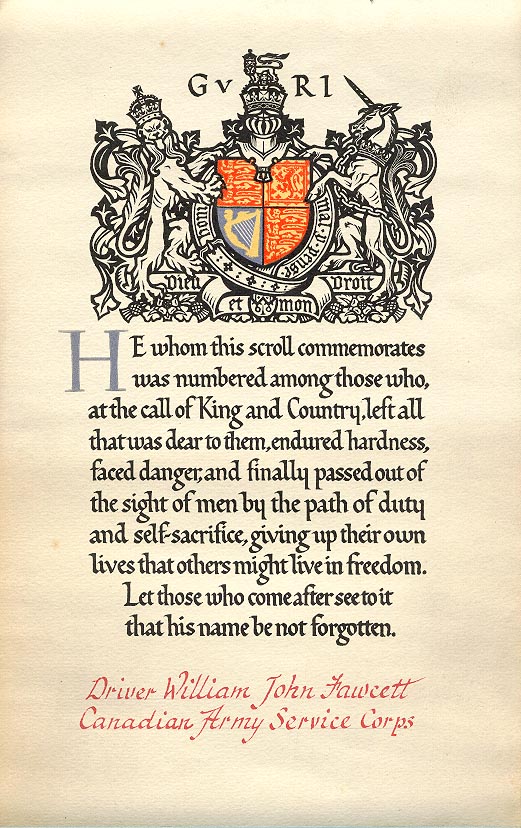 G V RI
Honi soit qui mal y pense
Dieu et mon Droit
HE whom this scroll commemorates
was numbered among those who,
at the call of King and Country, left all
that was dear to them, endured hardness,
faced danger, and finally passed out of
the sight of men by the path of duty
and self-sacrifice, giving up their own
lives that others might live in freedom.
Let those who come after see to it
that his name be not forgotten.
Driver William John Fawcett
Canadian Army Service Corps